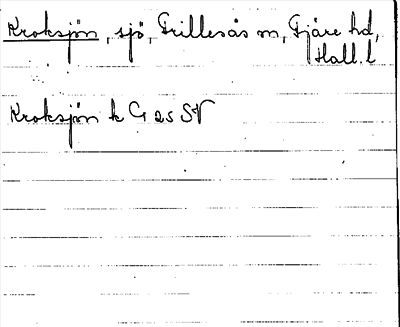 Kroksjön, sjö, Frillesås sn, Fjäre hd,
Hall. l
Kroksjön k G 25 SV